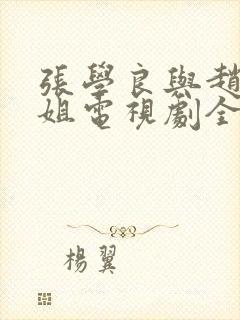 張學良與趙
姐電視劇全
楊翼